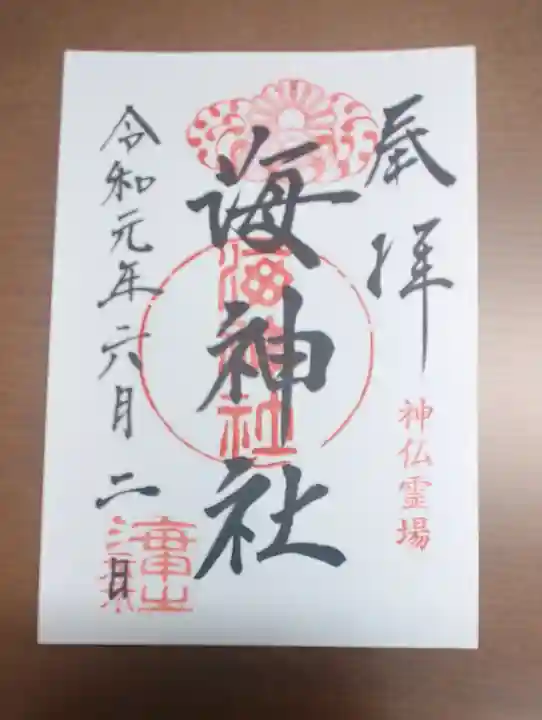 奉拝
神仏霊場
海神社
海神社
令和元年六月二日